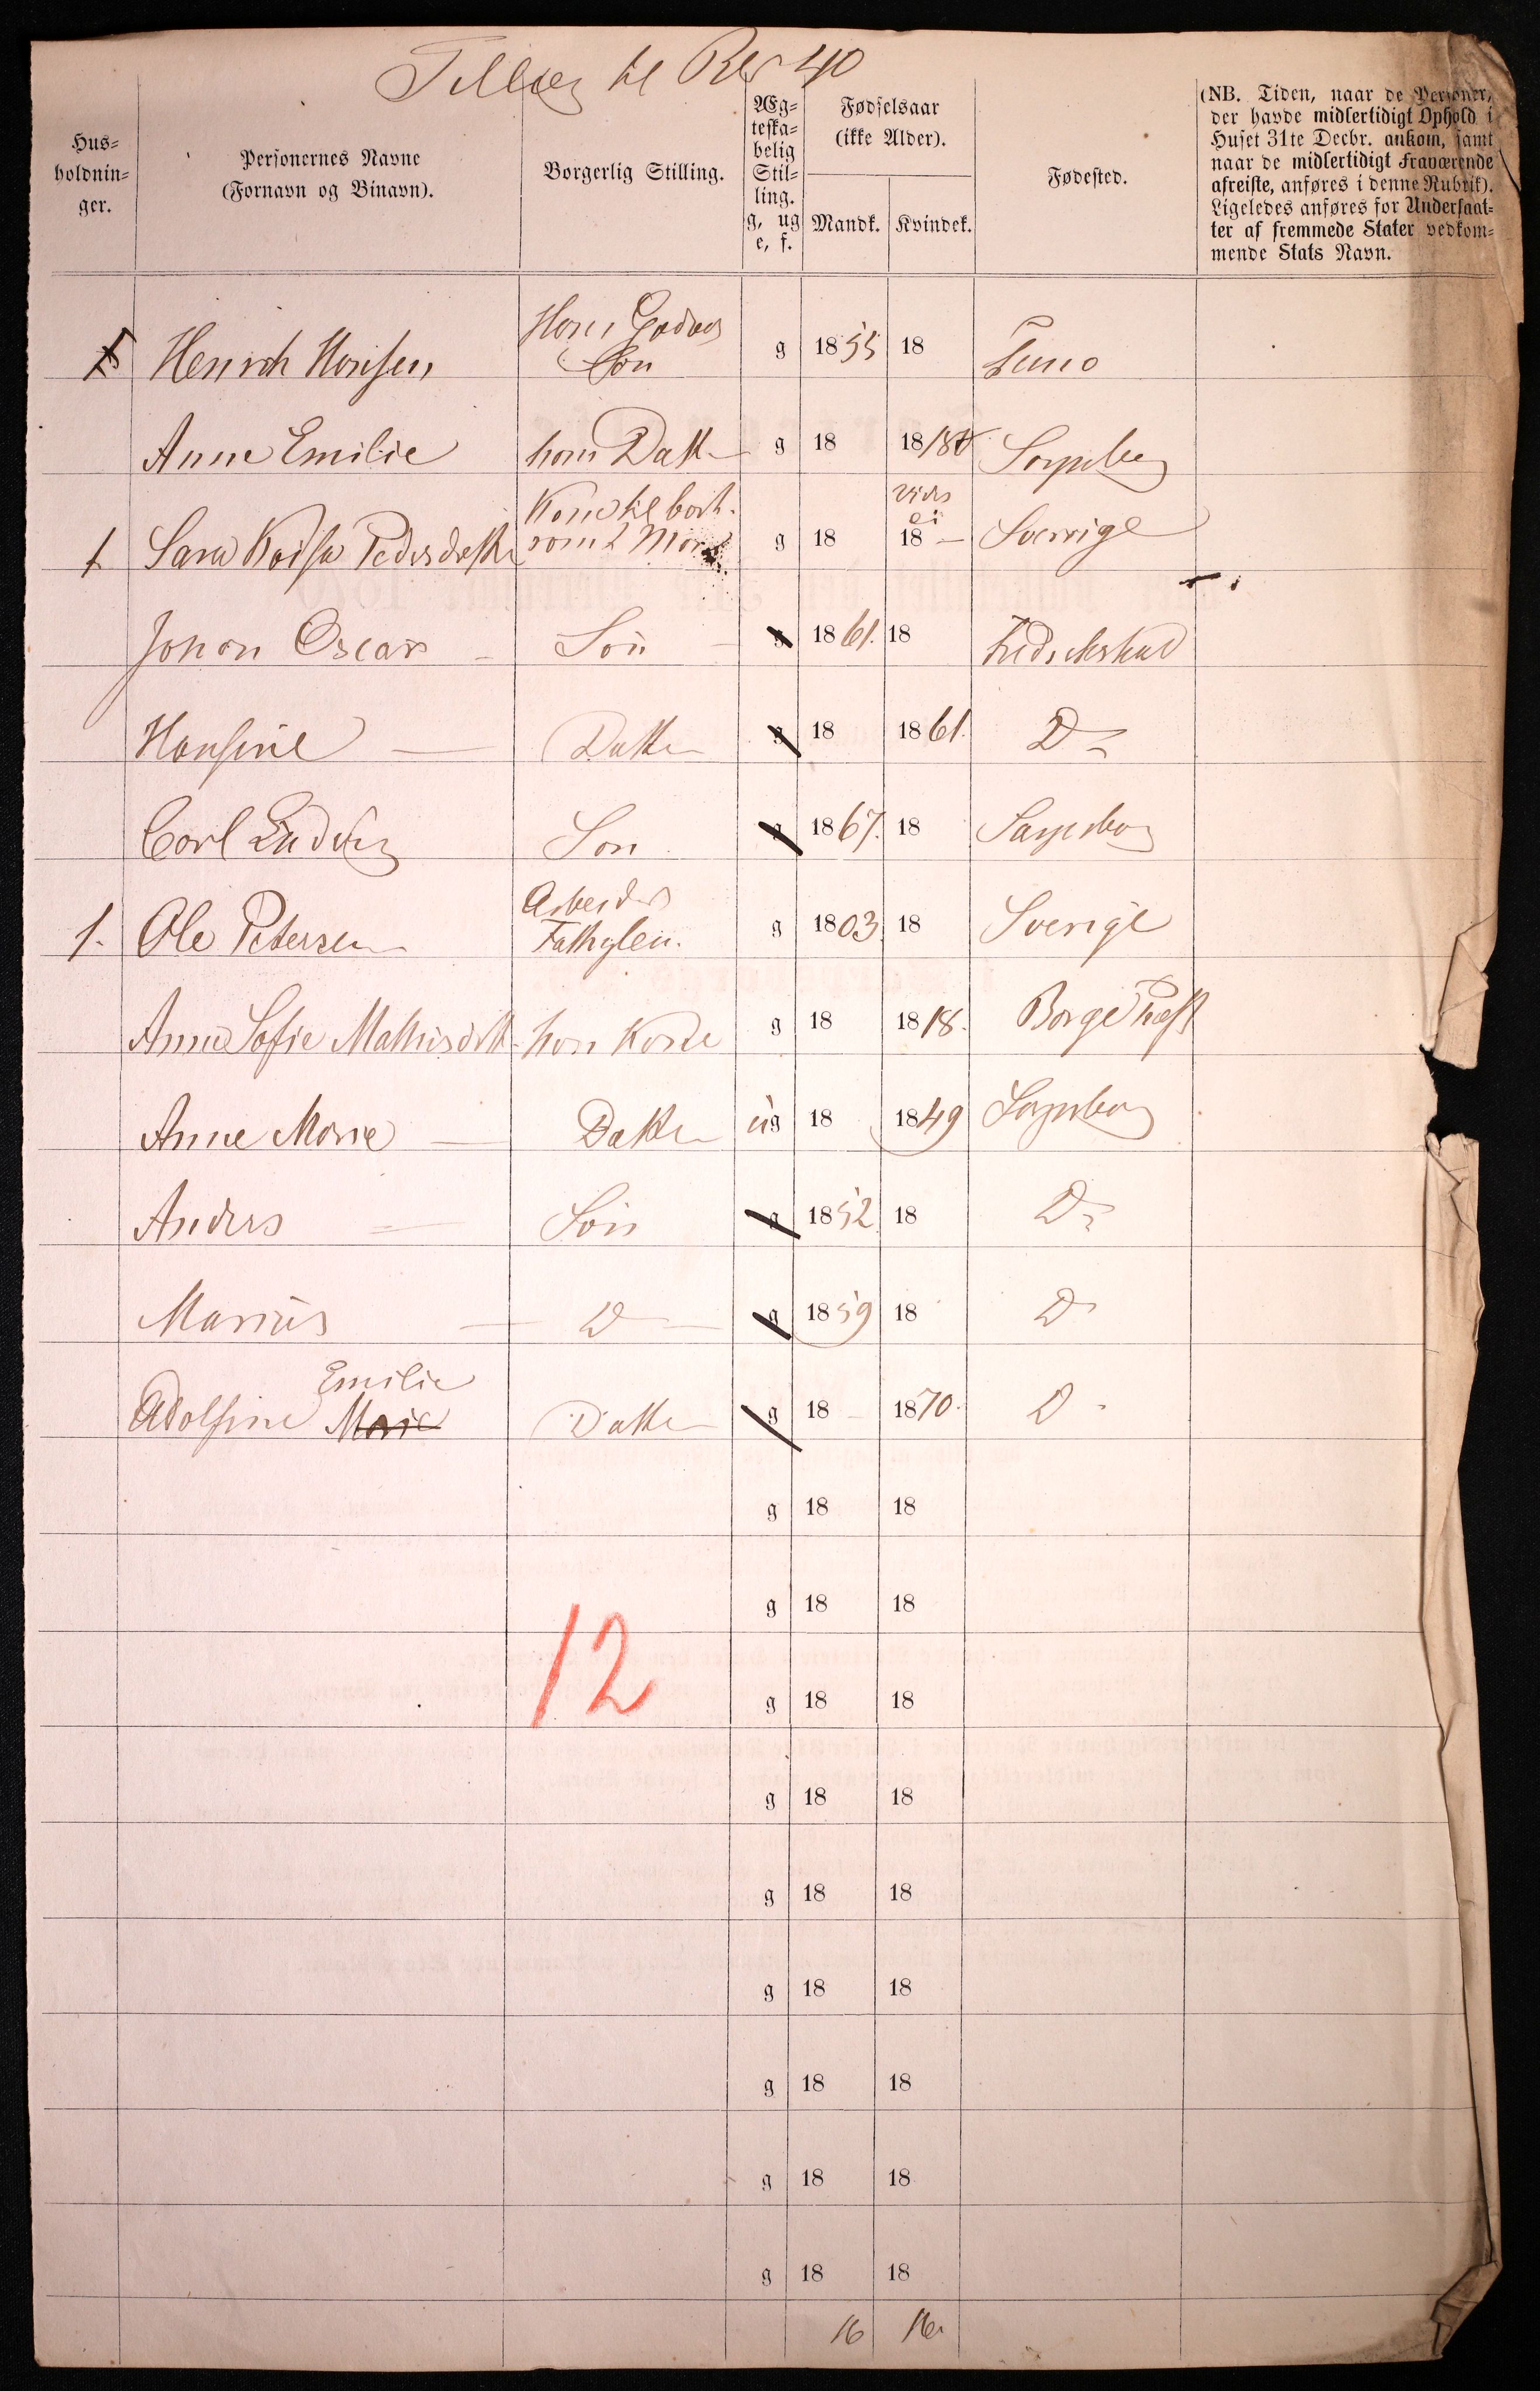 Tillæg til No 40
Hus-
holdnin-
ger.
Personernes Navne
(Fornavn og Binavn).
Borgerlig Stilling.
Æg-
teska-
belig
Stil-
ling.
g, ug
e, f.
Fødselsaar
(ikke Alder).
Mandk. Kvindek.
Fødested.
(NB. Tiden, naar de Personer,
der havde midlertidigt Ophold i
Huset 31te Decbr. ankom, samt
naar de midlertidigt Fraværende
afreiste, anføres i denne Rubrik).
Ligeledes anføres for Undersaat-
ter af fremmede Stater vedkom-
mende Stats Navn.
Hans
Henrich Hansen Søn g 1855 18
Anne Emilie hans Datter g 18 18 Sarpsborg
Kone til bort-
vides
ei
1 Sara Kaisa Pedersdatter rømt Mand g 18 18 — Sverrige
Johan Oscar Søn g 1861. 18 Fredrikshald
Hansine — Datter g 18 1861. Do
Carl Ludvig Søn g 1867. 18 Sarpsborg
Arbeider
1. Ole Petersen Fattiglem. g 1803. 18 Sverige
Anne Sofie Mathisdtt hans Kone g 18 1818. Borge Præst
Anne Marie — Datter ug 18 1849 Sarpsborg
Anders — Søn g 1852 18 Do
Marius — Do — g 1859 18 Do
Emilie
Adolfine Marie Datter g 18 1870. Do
g 18 18
g 18 18
12
g 18 18
g 18 18
g 18 18
g 18 18
g 18 18
g 18 18
g 18 18
16 16